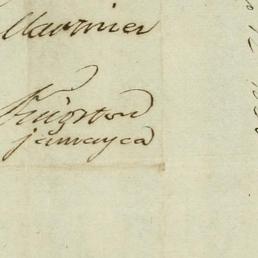 Mariner
Kingston
jamayca